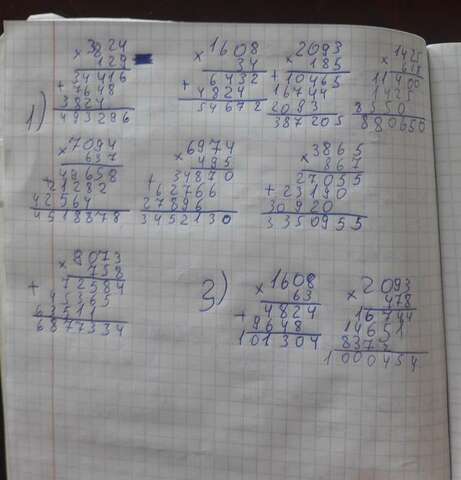 1)
3824
× 129
34416
+ 7648
3824
493296
1608
× 34
6432
+ 4824
54672
2093
× 185
+ 10465
16744
2093
387205
1425
× 618
11400
1425
8550
880650
7094
× 637
49658
+ 21282
42564
4518878
6974
× 495
34870
+ 62766
27896
3452130
3865
× 867
27055
+ 23190
30920
3350955
9073
× 758
72584
+ 45365
63511
6877334
3)
1608
× 63
4824
+ 9648
101304
2093
× 478
16744
14651
8372
1000454